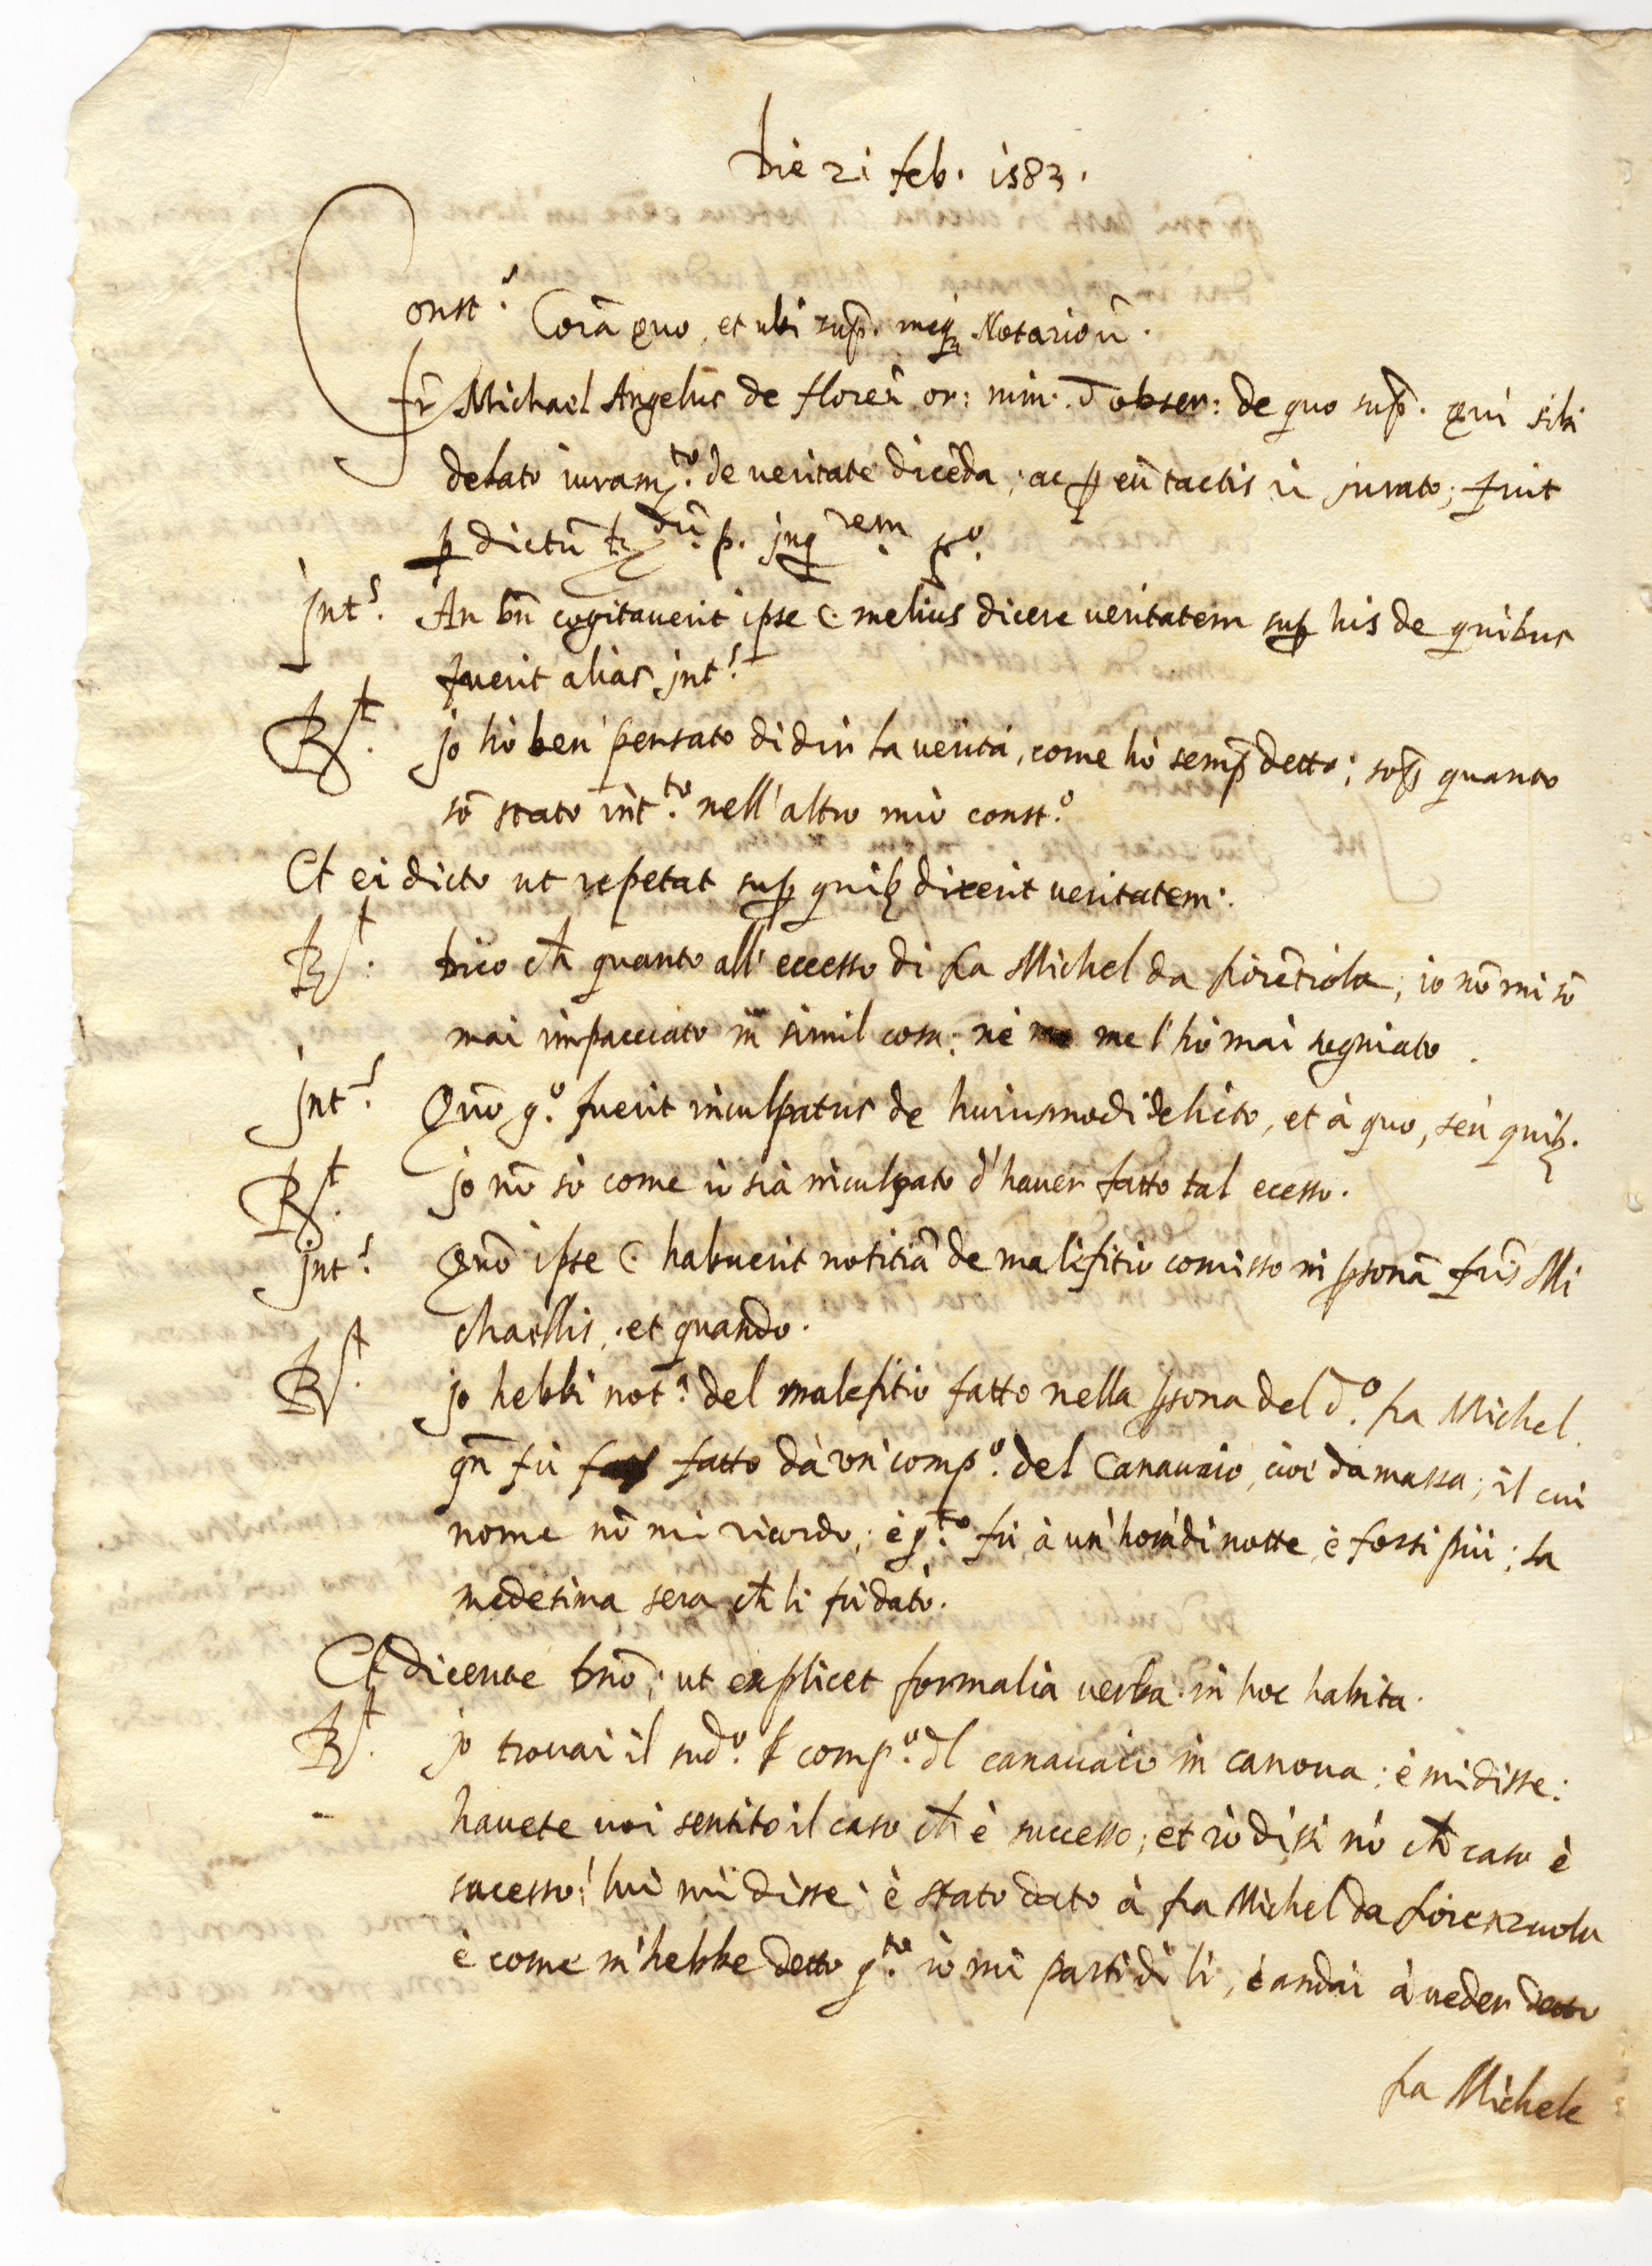 Die 21 feb. 1583.
Const.s Corā quo, et ubi sup. meq; Notario ū.
fr Michael Angelus de florē. or: min. d obser: de quo sup. qui sibi
delato iuram.to de veritate dicēda, ac p eū tactis jurato; fuit
p dictū p. jnq rem
jnt.s An bn cogitaverit ipse C. melius dicere veritatem sup his de quibus
fuerit alias jnt.s
R.t jo hò ben pensato di dir la verità, come hò semp detto; sop quanto
sō stato int.to nell' altro mio const.o
Et ei dicto ut repetat sup quib; dixerit veritatem.
R.t Dico ch quanto all' eccesso di fra Michel da fiorētiola, io nō mi sō
mai impacciato in simil cosa; nè me l' hò mai segniato.
jnt.s Quō g.o fuerit inculpatus de huiusmodi delicto, et à quo, seù quib;.
R.t jo nō sò come io sia inculpato d' haver fatto tal ecesso.
jnt.s Quō ipse C. habuerit notitiā de malefitio comisso in psonā fris Mi
chaellis, et quando.
R.t jo hebbi not.a del malefitio fatto nella psona del d.o fra Michel
qn fù fatto dà un comp.o del Canavaio, cioè da massa; il cui
nome nō mi ricordo; è q.to fù à un' hora di notte, è forsi più; la
medesima sera ch li fù dato.
Et dicente Dno, ut explicet formalia verba in hoc habita.
R.t jo trovai il sud.o comp.o dl canavaio in canova; è mi disse:
havete voi sentito il caso ch è successo; et io dissi nò ch caso è
sucesso! lui mi disse è stato dato à fra Michel da fiorenzuola
è come m'hebbe detto q.to io mi parti di lì, è andai à veder detto
fra Michele